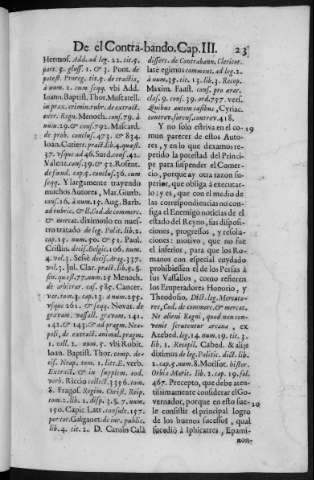 De el Contra-bando. Cap. III. 23
Hermos. Add. ad leg. 22. tit. 5.
part. 5. gloss. 1. & 3. Pont. de
potest. Proreg. tit. 5. de tractis,
à num. 1. cum seqq. vbi Add.
Ioann. Baptist. Thor. Muscatell.
in prax. crimin. rubr. de extract.
auri. Regn. Menoch. conf. 79. à
num. 29. & conf. 792. Mascard.
de prob. conclus. 473. & 834.
Ioan. Cutierr. pract. lib. 4. quæst.
37. vsque ad 46. Surd. conf. 42.
Valenc. conf. 39. & 52. Rosent.
de feud. cap. 5. conclus. 36. cum
seqq. Y largamente trayendo
muchos Autores, Mar. Giurb.
conf. 16. à num. 15. Aug. Barb.
ad rubric. & ll. Cod. de commerc.
& mercat. diximoslo en nuestro
tratado de leg. Polit. lib. 2.
cap. 15. num. 50. & 51. Paul.
Cristin. decis. Belgic. 106. num.
4. vol. 3. Sesè decis. arag. 337.
vol. 3. Jul. Clar. pract. lib. 5. §.
fin. quæst. 77. num. 25. Menoch.
de arbitrar. cas. 585. Cancer.
var. tom. 3. cap. 13. à num. 255.
vsque 261. & seqq. Novar. de
gravam. vassall. gravam. 141.
142. & 143. & ad pragm. Neapol.
de extract. animal. pragm.
1. coll. 2. num. 5. vbi Robit.
Ioan. Baptist. Thor. comp. decis.
Neap. tom. 1. litt. E. verb.
Extract. & in supplem. eod.
verb. Riccio collect. 1356. tom.
8. Fragos. Regim. Christ. Reip.
tom. 1. lib. 2. disp. 3. §. 7. num.
150. Capic. Latr. consult. 157.
per tot. Galganet. de iur. public.
lib. 4. tit. 2. D. Carolo Calà
dissert. de Contrabann. Clericor.
late egimus comment. ad leg. 2.
à num. 35. tit. 3. lib. 1. Recop.
Maxim. Faust. consf. pro ærar.
clas. 9. conf. 39. ord. 797. vers.
Quibus autem casibus, Cyriac.
controv. forens. controv. 418.
Y no solo estriva en el comun 19
parecer de estos Autores,
y en lo que dexamos repetido
la potestad del Principe
para suspender el Comercio,
porque ay otra razon superior,
que obliga à executarlo;
y es, que con el medio de
las correspondencias no consiga
el Enemigo noticias de el
estado del Reyno, sus disposiciones,
progressos, y resoluciones:
motivo, que no fue
el inferior, para que los Romanos
con especial cuydado
prohibiessen el de los Persas à
los Vassallos, como refieren
los Emperadores Honorio, y
Theodosio, Dict. leg. Mercatores,
Cod. de commerc. & mercat.
Ne alieni Regni, quod non convenit
scrutentur arcana, ex
Azebed. leg. 14. num. 19. tit. 3.
lib. 1. Recopil. Cabed. & alijs
diximus de leg. Politic. dict. lib.
2. cap. 5. num. 8. Morisot. histor.
Orbis Marit. lib. 2. cap. 19. fol.
467. Precepto, que debe atentissimamente
considerar el Governador,
porque en esto suele 20
consistir el principal logro
de los buenos sucessos, qual
sucedió à Iphicatres, Epami-
non-